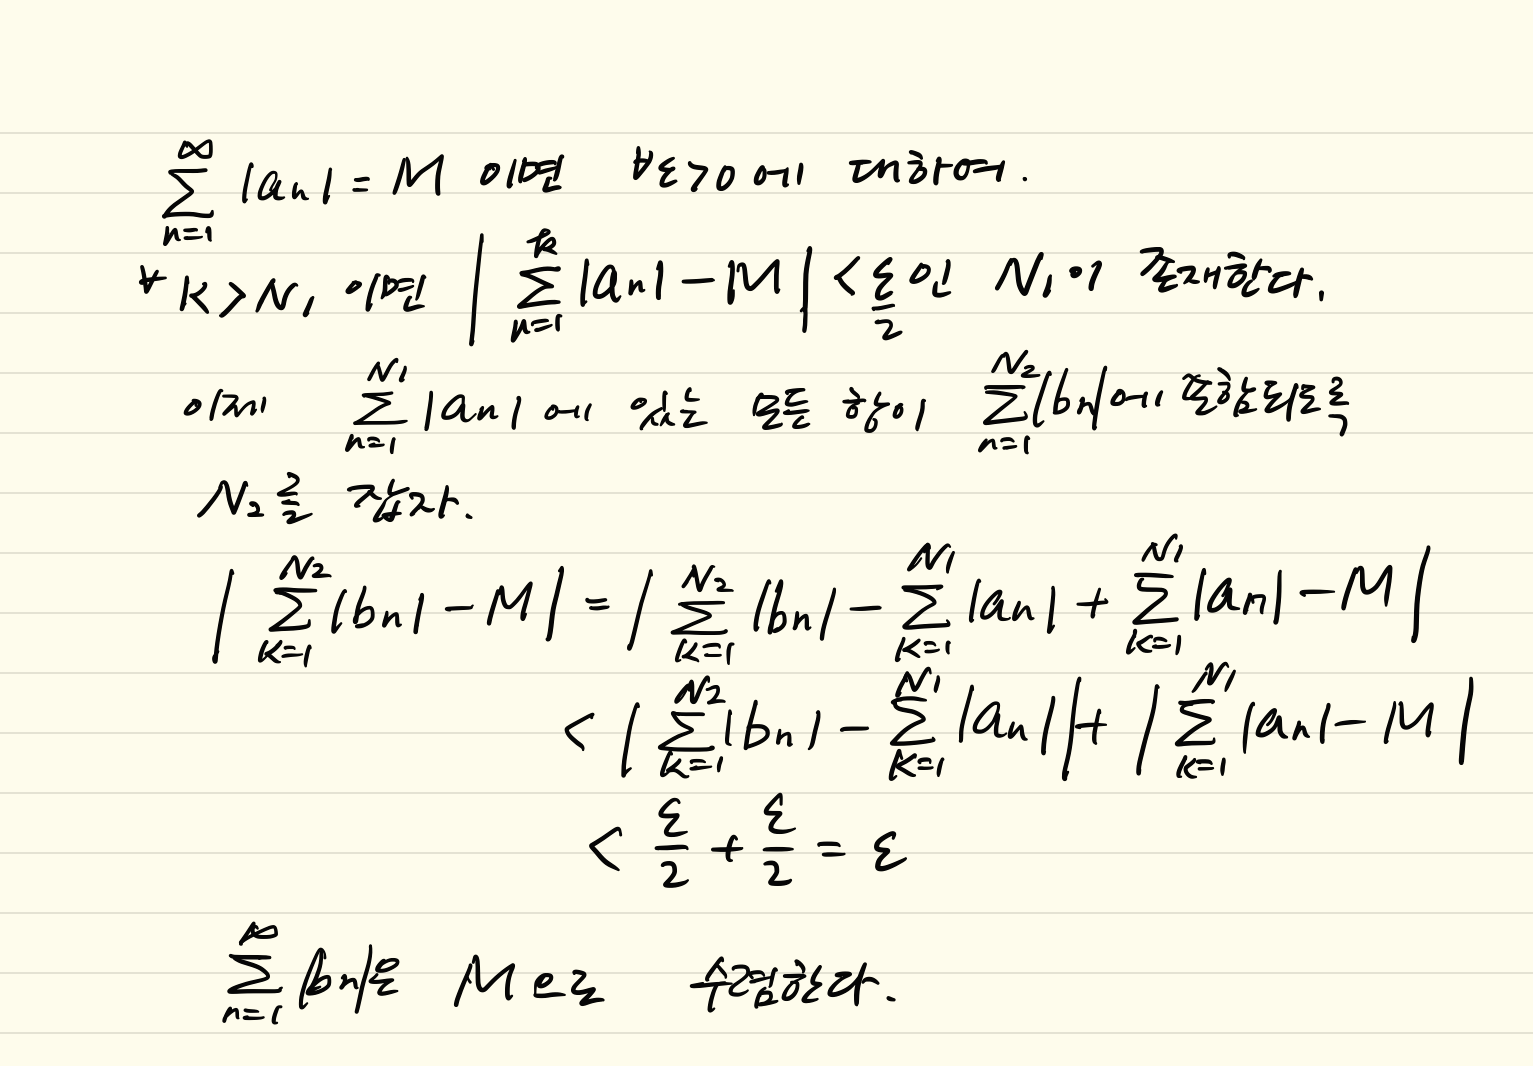 ∑_{n=1}^{∞} |a_n| = M 이면 ∀ε>0 에 대하여.
∀ K > N_1 이면 | ∑_{n=1}^{k} |a_n| - M | < ε/2 인 N_1 이 존재한다.
이제 ∑_{n=1}^{N_1} |a_n| 에 있는 모든 항이 ∑_{n=1}^{N_2} |b_n| 에 포함되도록
N_2 를 잡자.
| ∑_{K=1}^{N_2} |b_n| - M | = | ∑_{K=1}^{N_2} |b_n| - ∑_{K=1}^{N_1} |a_n| + ∑_{K=1}^{N_1} |a_n| - M |
< | ∑_{K=1}^{N_2} |b_n| - ∑_{K=1}^{N_1} |a_n| | + | ∑_{K=1}^{N_1} |a_n| - M |
< ε/2 + ε/2 = ε
∑_{n=1}^{∞} |b_n| 은 M으로 수렴한다.